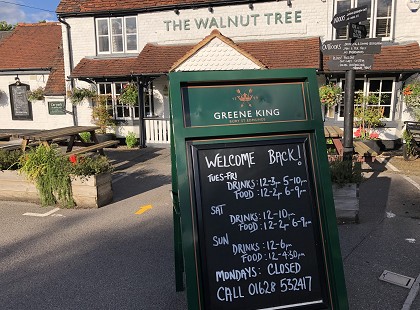 THE WALNUT TREE
GREENE KING
BURY ST EDMUNDS
WELCOME BACK!
TUES-FRI
DRINKS: 12-3, 5-10pm
FOOD: 12-2, 6-9pm
SAT
DRINKS: 12-10pm
FOOD: 12-2, 6-9pm
SUN
DRINKS: 12-6pm
FOOD: 12-4:30pm
MONDAYS: CLOSED
CALL 01628 532417